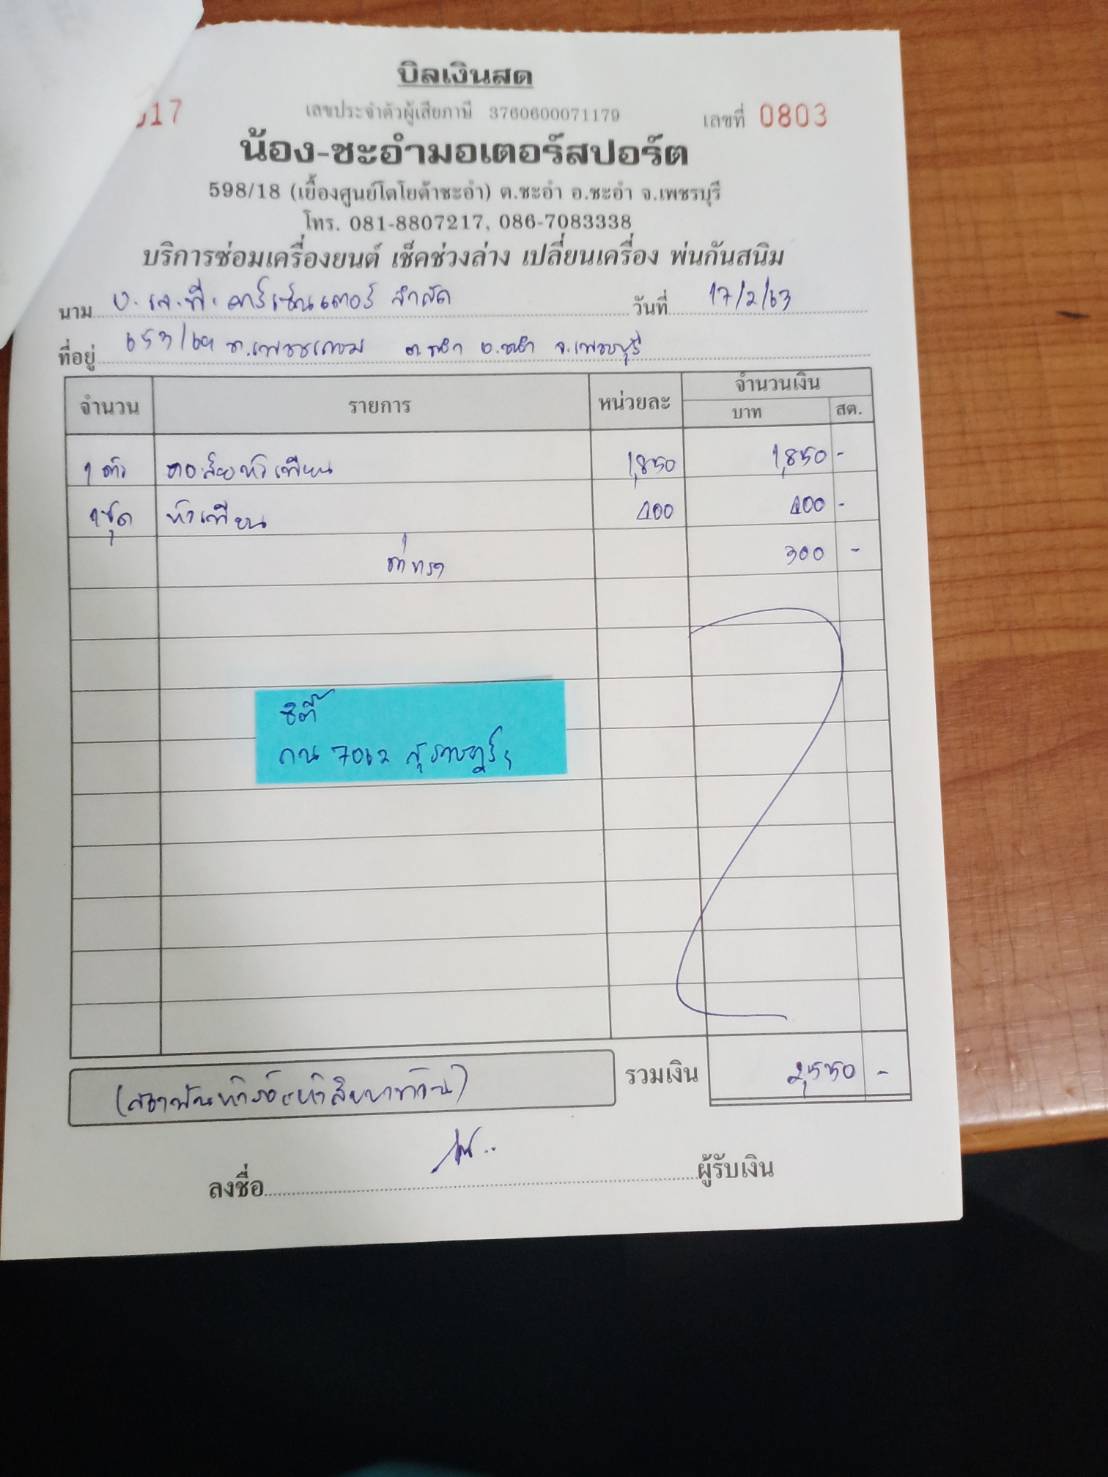 บิลเงินสด
17
เลขประจำตัวผู้เสียภาษี 3760600071179
เลขที่ 0803
น้อง-ชะอำมอเตอร์สปอร์ต
598/18 (เยื้องศูนย์โตโยต้าชะอำ) ต.ชะอำ อ.ชะอำ จ.เพชรบุรี
โทร. 081-8807217, 086-7083338
บริการซ่อมเครื่องยนต์ เช็คช่วงล่าง เปลี่ยนเครื่อง พ่นกันสนิม
นาม บ. เจ.พี. คาร์เซ็นเตอร์ จำกัด วันที่ 17/2/63
ที่อยู่ ถ.เพชรเกษม ต.ชะอำ อ.ชะอำ จ.เพชรบุรี
จำนวน รายการ หน่วยละ จำนวนเงิน
บาท สต.
1 ตัว คอล์ยหัวเทียน 1,850 1,850 -
1 ชุด หัวเทียน 400 400 -
ค่าแรง 300 -
ซิตี้
กน 7062 สุราษฎร์ฯ
รวมเงิน 2,550 -
(สองพันห้าร้อยห้าสิบบาทถ้วน)
ลงชื่อ ผู้รับเงิน